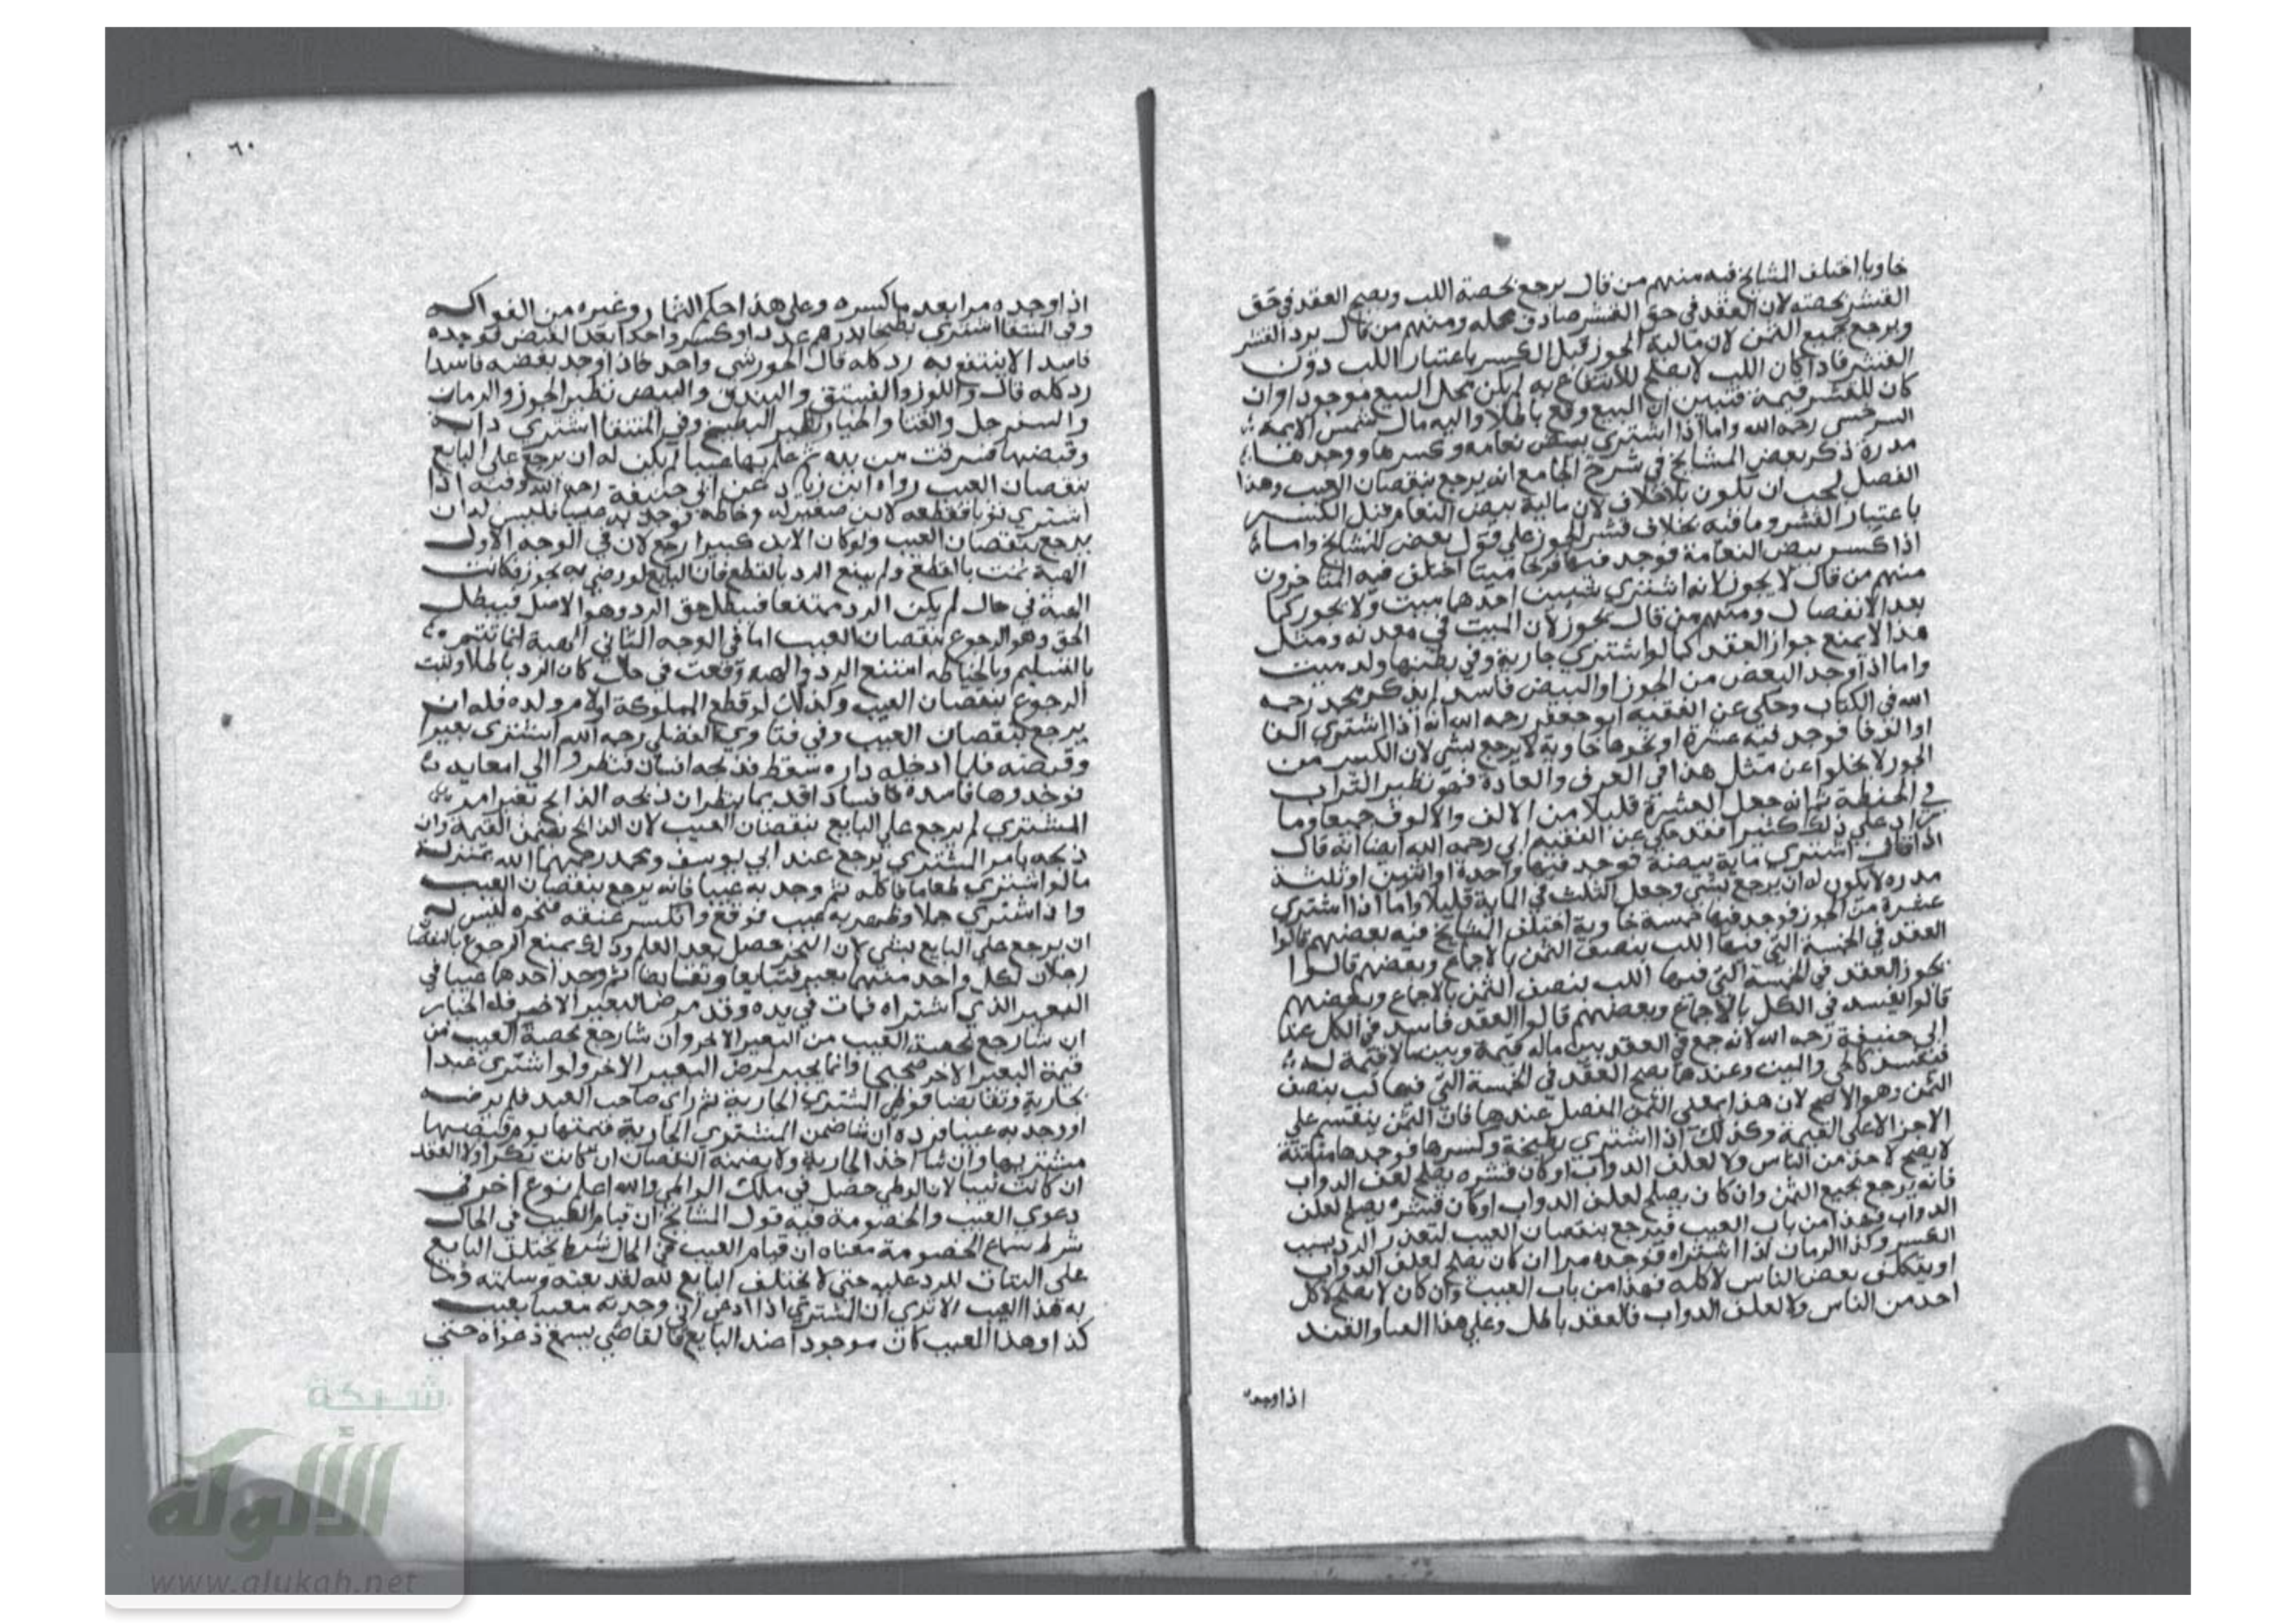 خاويا اختلف المشايخ فيه منهم من قال يرجع بحصة اللب ويصح العقد في حق
القشر بحصته لان العقد في حق القشر صادف محله ومنهم من قال يرد القشر
ويرجع بجميع الثمن لان مالية الجوز قبل الكسر باعتبار اللب دون
القشر فاذا كان اللب لا يصلح للانتفاع به لم يكن محل البيع موجودا وان
كان للقشر قيمة فتبين ان البيع وقع باطلا واليه مال شمس الايمة
السرخسي رحمه الله واما اذا اشتري بيض نعامه وكسرها ووجدها
مدرة ذكر بعض المشايخ في شرح الجامع انه يرجع بنقصان العيب وهذا
الفصل يجب ان يكون بلا خلاف لان مالية بيض النعام قبل الكسر
باعتبار القشر وما فيه بخلاف قشر الجوز علي قول بعض المشايخ واما
اذا كسر بيض النعامة فوجد فيها فرخا ميتا اختلف فيه المتاخرون
منهم من قال لا يجوز لانه اشتري شيين احدهما ميت ولا يجوز كما
بعد الانفصال ومنهم من قال يجوز لان الميت في معدنه ومثل
هذا لا يمنع جواز العقد كما لو اشتري جارية وفي بطنها ولد ميت
واما اذا وجد البعض من الجوز او البيض فاسدا لم يذكر محمد رحمه
الله في الكتاب وحكي عن الفقيه ابو جعفر رحمه الله انه اذا اشتري الفا
او الوفا فوجد فيه عشرة او نحوها خاوية لا يرجع بشي لان الكسر من
الجوز لا يخلوا عن مثل هذا في العرف والعادة فهو نظير التراب
في الحنطة ثم انه جعل العشرة قليلا من الالف والالوف جميعا وما
زاد علي ذلك كثيرا فقد حكي عن الفقيه ابي رحمه الله ايضا انه قال
اذا قال اشتري ماية بيضة فوجد فيها واحدة او اثنين او ثلثة
مدره لا يكون له ان يرجع بشي وجعل الثلث في الماية قليلا واما اذا اشتري
عشرة من الجوز فوجد فيها خمسة خاوية اختلف المشايخ فيه بعضهم قالوا
العقد في الخمسة التي فيها اللب بنصف الثمن بالاجماع وبعضهم قالوا
يجوز العقد في الخمسة التي فيها اللب بنصف الثمن بالاجماع وبعضهم
قالوا يفسد في الكل بالاجماع وبعضهم قالوا العقد فاسد في الكل عند
ابي حنيفة رحمه الله لانه جمع في العقد بين ماله قيمة وبين ما لا قيمة له
فيفسد كالحي والميت وعندهما يصح العقد في الخمسة التي فيها لب بنصف
الثمن وهو الاصح لان هذا بمعني الثمن المفصل عندهما فان الثمن ينقسم علي
الاجزا لا علي القيمة وكذلك اذا اشتري بطيخة وكسرها فوجدها منتنة
لا يصلح لاحد من الناس ولا لعلف الدواب او كان قشره يصلح لعلف الدواب
فانه يرجع بجميع الثمن وان كان يصلح لعلف الدواب او كان قشره يصلح لعلف
الدواب فهذا من باب العيب فيرجع بنقصان العيب لتعذر الرد بسبب
الكسر وكذا الرمان اذا اشتراه فوجده مرا ان كان يصلح لعلف الدواب
او يتكلف بعض الناس لاكله فهذا من باب العيب وان كان لا يصلح لاكل
احد من الناس ولا لعلف الدواب فالعقد باطل وعلي هذا القثا والقند
اذا وجده
٦٠
اذا وجده مرا بعد ما كسره وعلي هذا احكم الثمار وغيره من الفواكه
وفي المنتقا اشتري بطيخا بدرهم عددا وكسر واحدا بعد القبض فوجده
فاسدا لا ينتفع به رد كله قال الجوزشي واحد فاذا وجد بعضه فاسدا
رد كله قال واللوز والفستق والبندق والبيض نظير الجوز والرمان
والسفرجل والقثا والخيار نظير البطيخ وفي المنتقا اشتري دابة
وقبضها فسرقت من يده ثم علم بها عيبا لم يكن له ان يرجع علي البايع
بنقصان العيب رواه ابن زياد عن ابي حنيفة رحمه الله وفيه اذا
اشتري ثوبا فقطعه لابن صغير له وخاطه فوجد به عيبا فليس له ان
يرجع بنقصان العيب ولو كان الابن كبيرا رجع لان في الوجه الاول
الهبة تمت بالقطع ولم يمنع الرد بالقطع فان البايع لو رضي به يجوز فكانت
الهبة في حال لم يكن الرد ممتنعا فيبطل حق الرد وهو الاصل فيبطل
الحق وهو الرجوع بنقصان العيب اما في الوجه الثاني الهبة انما تتم
بالتسليم وبالخياطه امتنع الرد والهبه وقعت في حال كان الرد باطلا ولتبت
الرجوع بنقصان العيب وكذلك لو قطع المملوكة او لام ولده فله ان
يرجع بنقصان العيب وفي فتاوي الفضلي رحمه الله اشتري بعيرا
وقبضه فلما ادخله داره سقط فذبحه انسان فنظروا الي امعايه
فوجدوها فاسده فسادا قديما ينظر ان ذبحه الذابح بغير امر
المشتري لم يرجع علي البايع بنقصان العيب لان الذابح يضمن القيمة وان
ذبحه بامر المشتري يرجع عند ابي يوسف ومحمد رحمهما الله بمنزلة
ما لو اشتري طعاما فاكله ثم وجد به عيبا فانه يرجع بنقصان العيب
واذا اشتري جملا وظهر به عيب فوقع وانكسر عنقه فنحره ليس له
ان يرجع علي البايع بشي لان النحر حصل بعد العلم وذلك يمنع الرجوع بالنقصان
رجلان لكل واحد منهما بعير فتبايعا وتقابضا ثم وجد احدهما عيبا في
البعير الذي اشتراه فمات في يده وقد مرض البعير الاخر فله الخيار
ان شا رجع بحصة العيب من البعير الاخر وان شا رجع بحصة العيب من
قيمة البعير الاخر صحيحا وانما يخير لمرض البعير الاخر ولو اشتري عبدا
بجارية وتقابضا فوطي المشتري الجارية ثم راي صاحب العبد فلم يرضه
او وجد به عيبا فرده ان شا ضمن المشتري الجارية قيمتها يوم قبضها
مشتريها وان شا اخذ الجارية ولا يضمنه النقصان ان كانت بكرا ولا العقد
ان كانت ثيبا لان الوطي حصل في ملك الواطي والله اعلم نوع اخر في
دعوي العيب والخصومة فيه قول المشايخ ان قيام العيب في الحال
شرط سماع الخصومة معناه ان قيام العيب في الحال شرط يحتلف البايع
علي البتات للرد عليه حتي لا يحتلف البايع لله لقد بعته وسلمته وما
به هذا العيب الا تري ان المشتري اذا ادعي اني وجدته معيبا بعيب
كذا وهذا العيب كان موجودا عند البايع فالقاضي يسمع دعواه حتي
شبكة
الألوكة
www.alukah.net